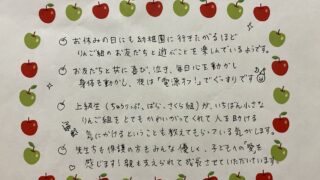 お休みの日にも幼稚園に行きたがるほど
りんご組のお友だちと遊ぶことを楽しんでいるようです。
お友だちと共に喜び、泣き、毎日心を動かし
身体を動かし、夜は「電源オフ!」でぐっすりです
上級生(ちゅうりっぷ、ばら、さくら組)が、いちばん小さな
りんご組をとてもかわいがってくれて人を助ける
気にかけるということも教えてもらっている気がします。
先生方も保護者の方もみんな優しく、子どもへの愛を
感じます!親も支えられて成長させていただいています。